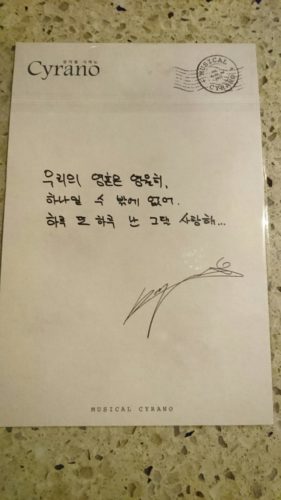 뮤지컬 시라노
Cyrano
MUSICAL
CYRANO
우리의 영혼은 영원히,
하나일 수 밖에 없어.
하루 또 하루 난 그댈 사랑해...
MUSICAL CYRANO